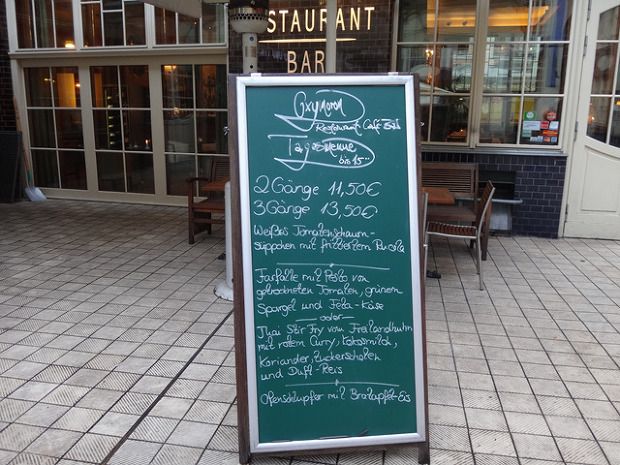 RESTAURANT
BAR
Oxymoron
Restaurant Café Bar
Tagesmenue
bis 15°°
2 Gänge 11,50€
3 Gänge 13,50€
Weißes Tomatenschaum-
süppchen mit frittiertem Rucola
Farfalle mit Pesto von
getrockneten Tomaten, grünem
Spargel und Feta-Käse
oder
Thai Stir Fry vom Freilandhuhn
mit rotem Curry, Kokosmilch,
Koriander, Zuckerschoten
und Duft-Reis
Ofenschlupfer mit Bratapfel-Eis